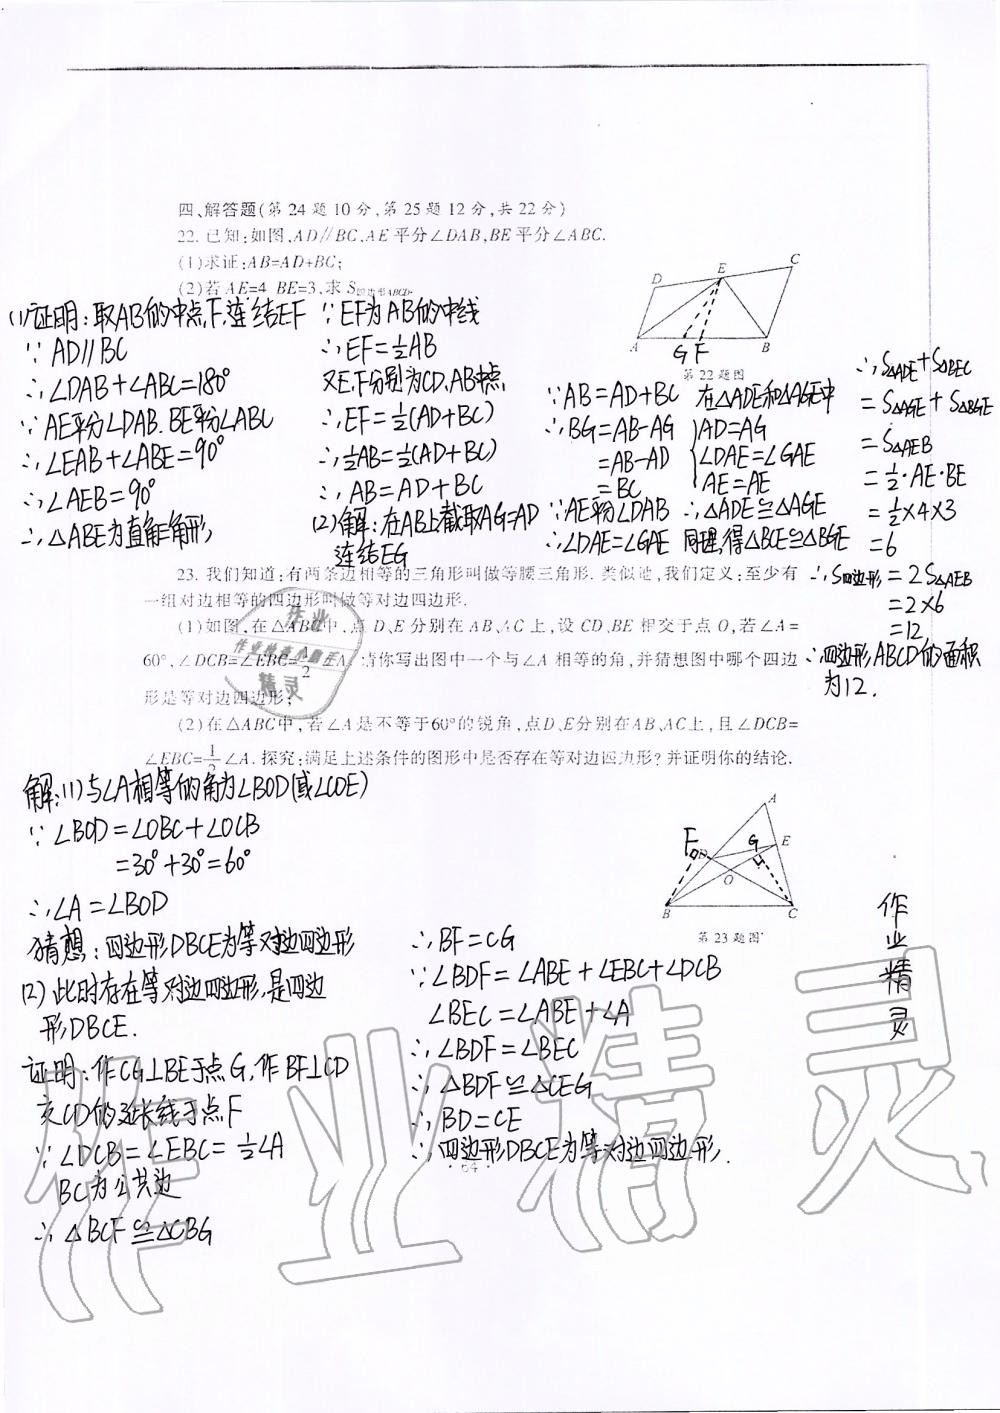 四、解答题(第24题10分,第25题12分,共22分)
22. 已知:如图,AD∥BC,AE平分∠DAB,BE平分∠ABC.
(1)求证:AB=AD+BC;
(2)若AE=4 BE=3,求S四边形ABCD.
D E C
A G F B
第22题图
(1)证明:取AB的中点F,连结EF
∵AD∥BC
∴∠DAB+∠ABC=180°
∵AE平分∠DAB.BE平分∠ABC
∴∠EAB+∠ABE=90°
∴∠AEB=90°
∴△ABE为直角三角形
∵EF为AB的中线
∴EF=½AB
又E,F分别为CD,AB中点
∴EF=½(AD+BC)
∴½AB=½(AD+BC)
∴AB=AD+BC
(2)解:在AB上截取AG=AD
连结EG
∵AB=AD+BC
∴BG=AB-AG
=AB-AD
=BC
∵AE平分∠DAB
∴∠DAE=∠GAE
在△ADE和△AGE中
{AD=AG
∠DAE=∠GAE
AE=AE
∴△ADE≌△AGE
同理,得△BCE≌△BGE
∴S△ADE+S△BEC
=S△AGE+S△BGE
=S△AEB
=½·AE·BE
=½×4×3
=6
∴S四边形=2S△AEB
=2×6
=12
∴四边形ABCD的面积
为12.
23. 我们知道:有两条边相等的三角形叫做等腰三角形. 类似地,我们定义:至少有
一组对边相等的四边形叫做等对边四边形.
(1)如图,在△ABC中,点D、E分别在AB、AC上,设CD、BE相交于点O,若∠A=
60°,∠DCB=∠EBC=½∠A.请你写出图中一个与∠A相等的角,并猜想图中哪个四边
形是等对边四边形;
(2)在△ABC中,若∠A是不等于60°的锐角,点D、E分别在AB、AC上,且∠DCB=
∠EBC=½∠A.探究:满足上述条件的图形中是否存在等对边四边形?并证明你的结论.
A
F D G E
O
B C
第23题图
解:(1)与∠A相等的角为∠BOD(或∠COE)
∵∠BOD=∠OBC+∠OCB
=30°+30°=60°
∴∠A=∠BOD
猜想:四边形DBCE为等对边四边形
(2)此时存在等对边四边形,是四边
形DBCE.
证明:作CG⊥BE于点G,作BF⊥CD
交CD的延长线于点F
∵∠DCB=∠EBC=½∠A
BC为公共边
∴△BCF≌△CBG
∴BF=CG
∵∠BDF=∠ABE+∠EBC+∠DCB
∠BEC=∠ABE+∠A
∴∠BDF=∠BEC
∴△BDF≌△CEG
∴BD=CE
∴四边形DBCE为等对边四边形.
· 64 ·
作业精灵
作业精灵
作业
精灵